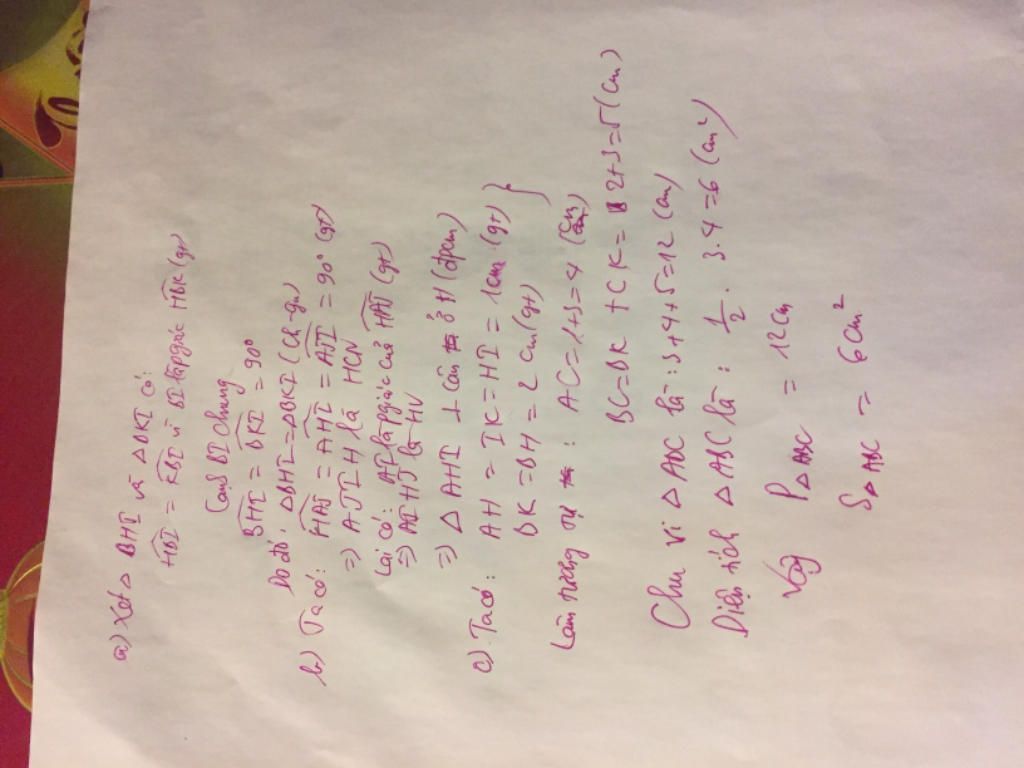 a) Xét △ BHI và △ BKI có:
HBI = KBI vì BI là p.giác HBK (gt)
Cạnh BI chung
BHI = BKI = 90°
Do đó, △BHI = △BKI (ch-gn)
b) Ta có: HAJ = AHI = AJI = 90° (gt)
=> AJIH là HCN
Lại có: AI là p.giác của HAJ (gt)
=> AIHJ là HV
=> △ AHI ⊥ cân ở H (đpcm)
c) Ta có: AH = IK = HI = 1cm (gt) }
BK = BH = 2 cm (gt)
Làm tương tự : AC = 1+3=4 (cm)
BC=BK + CK = 2+3=5 (cm)
Chu vi △ ABC là : 3+4+5=12 (cm)
Diện tích △ ABC là : 1/2 . 3.4 =6 (cm²)
Vậy P△ ABC = 12cm
S△ ABC = 6cm²